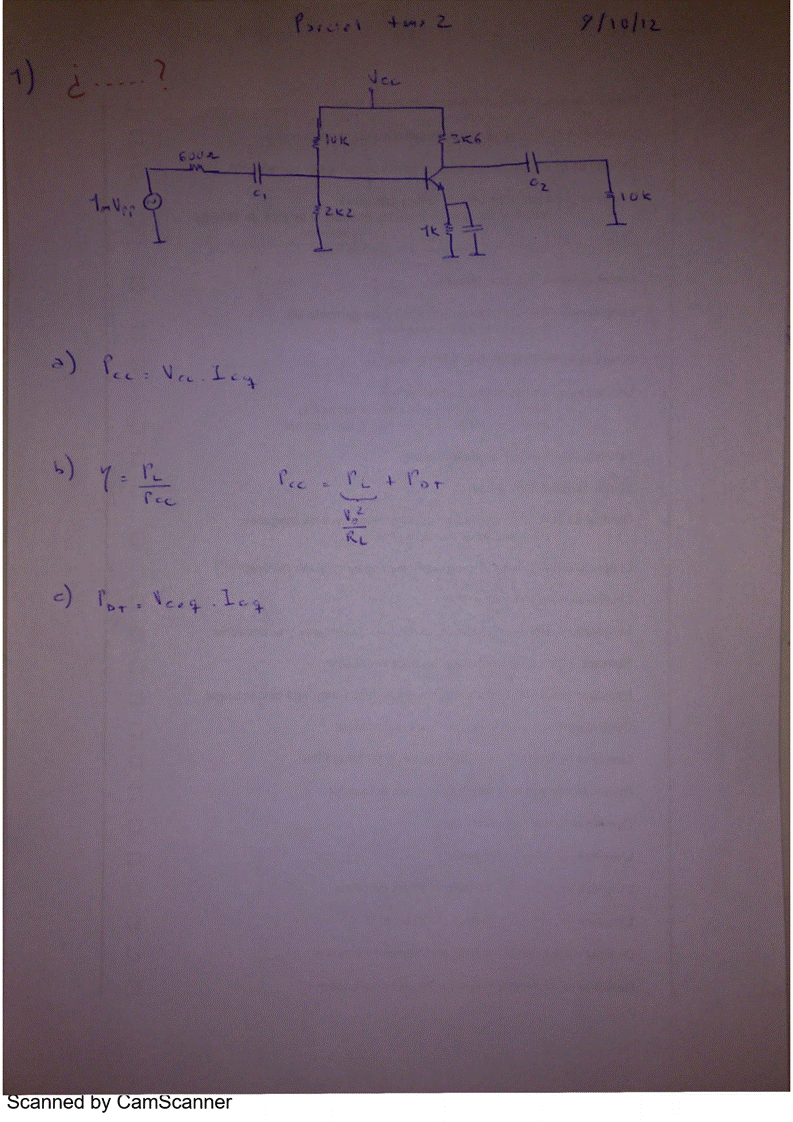 Parcial tema 2 9/10/12
1) ¿.....?
Vcc
10K
3K6
600Ω
C1
C2
1mVpp
2K2
1K
10K
a) Pcc = Vcc . Icq
b) η = PL / Pcc Pcc = PL + PDT
Vo² / RL
c) PDT = Vceq . Icq
Scanned by CamScanner